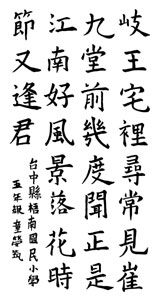 岐王宅裡尋常見崔
九堂前幾度聞正是
江南好風景落花時
節又逢君
台中縣梧南國民小學
五年級